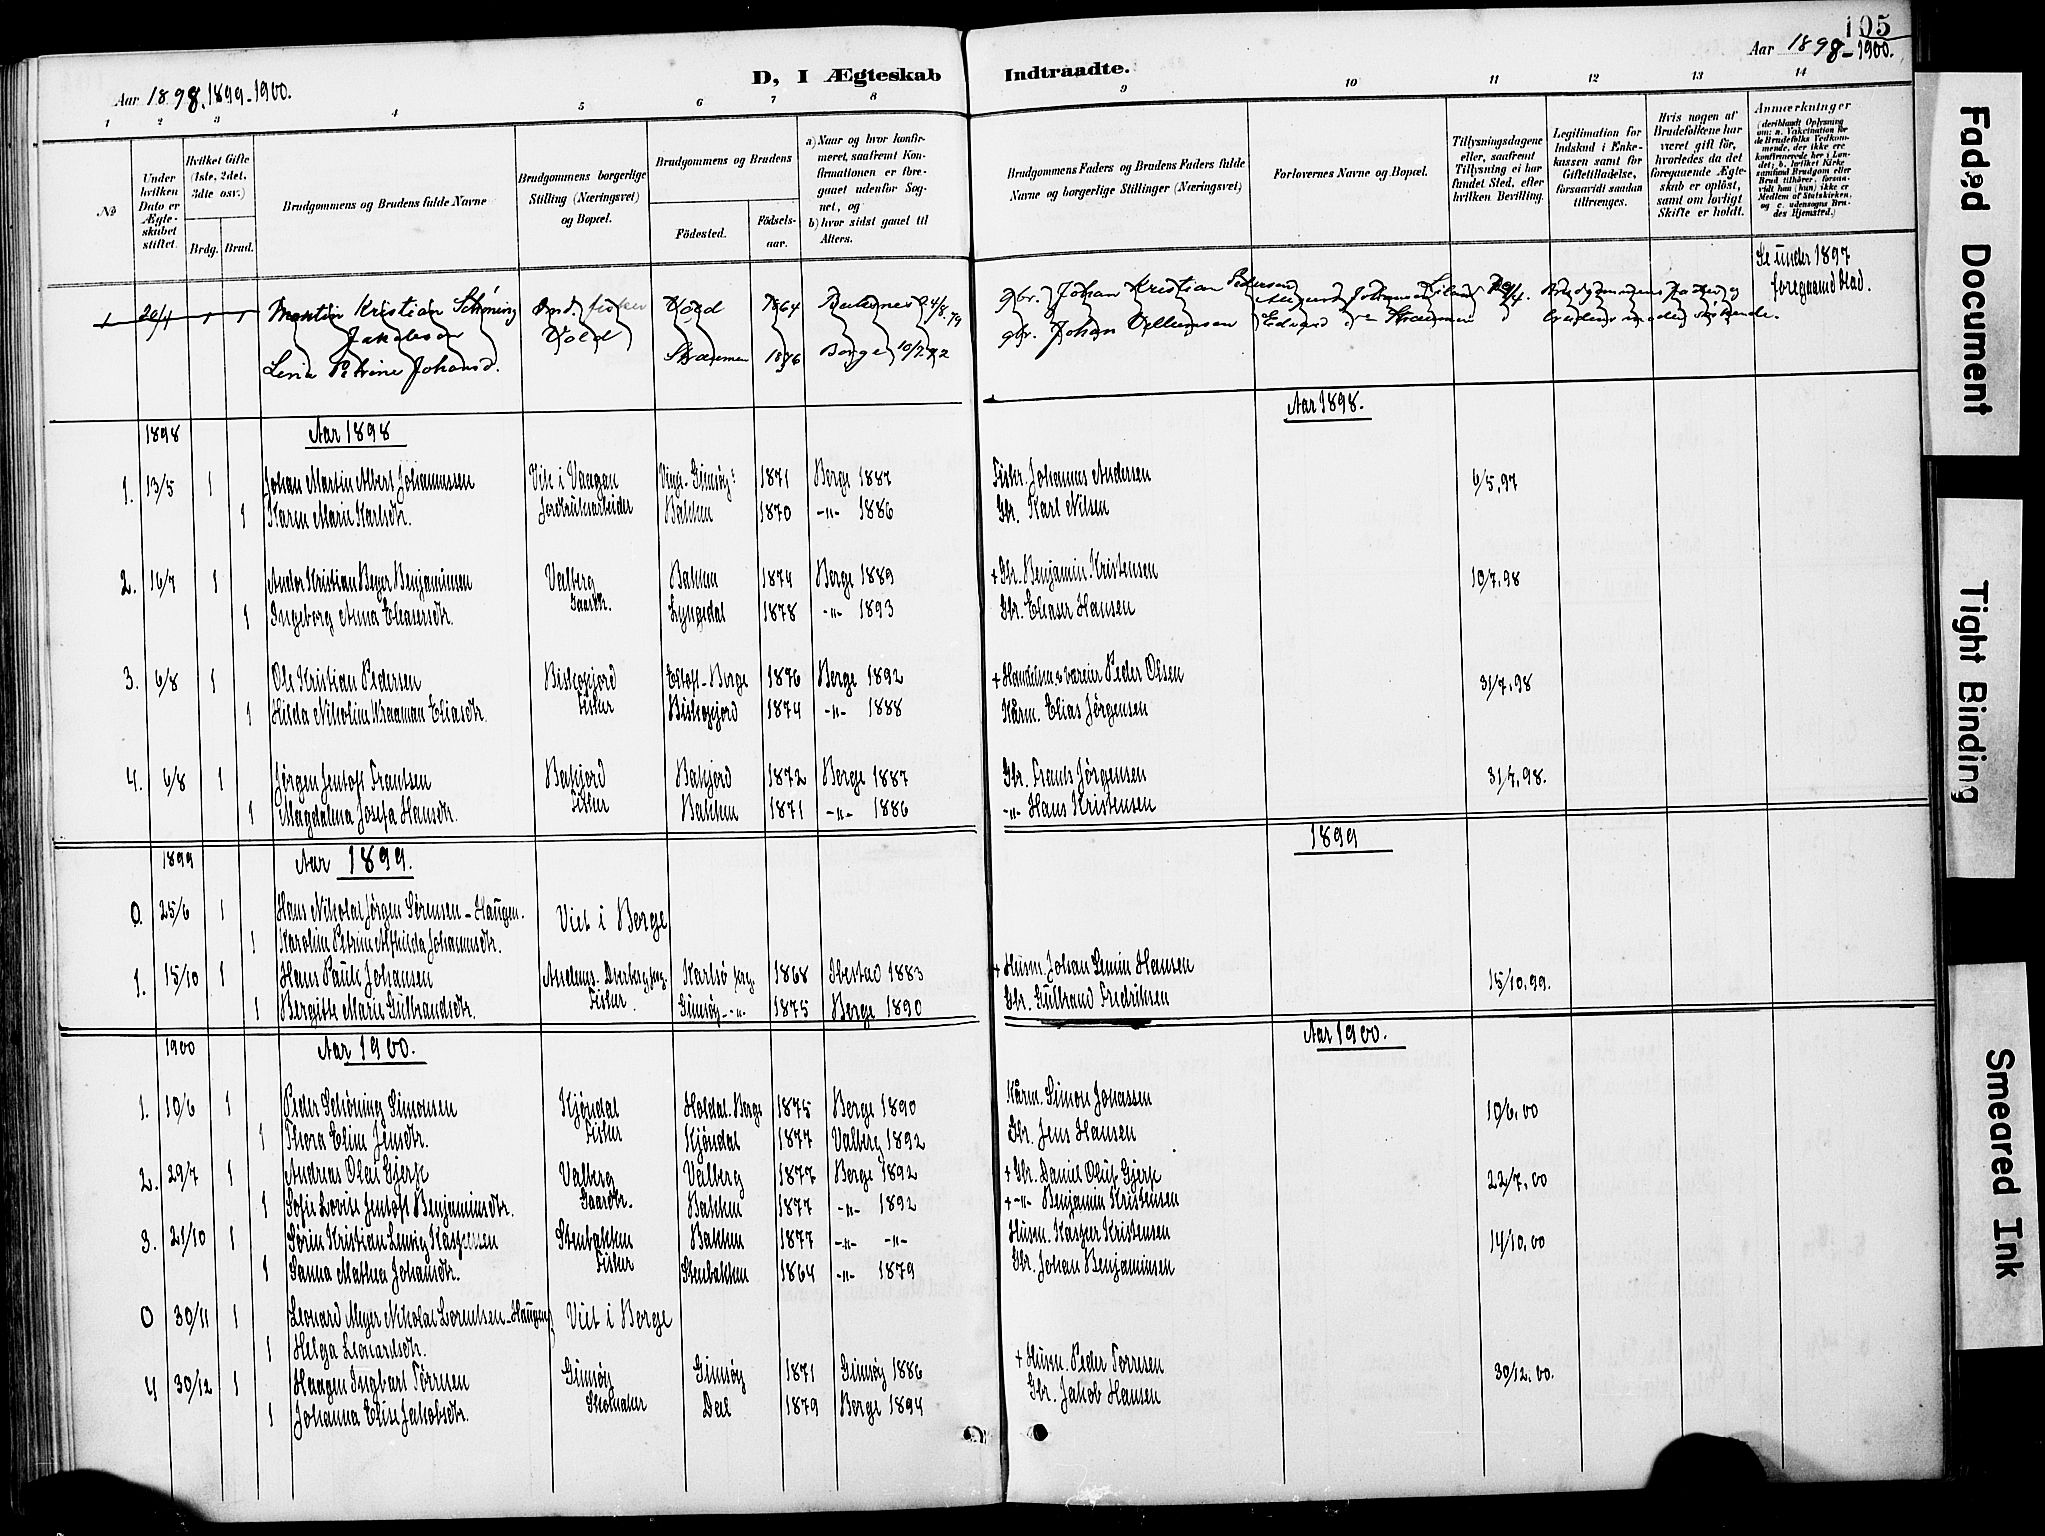 105
Aar 1898, 1899-1900.
D, I Ægteskab
Indtraadte.
Aar 1898-1900.
1 2 3 4 5 6 7 8 9 10 11 12 13 14
No
Under hvilken Dato er Ægteskabet stiftet.
Hvilket Gifte (1ste, 2det, 3die osv.)
Brdg. Brud.
Brudgommens og Brudens fulde Navne
Brudgommens borgerlige Stilling (Næringsvei) og Bopæl.
Brudgommens og Brudens
Födested. Födselsaar.
a) Naar og hvor konfirmeret, saafremt Konfirmationen er foregaaet udenfor Sognet, og
b) hvor sidst gaaet til Alters.
Brudgommens Faders og Brudens Faders fulde Navne og borgerlige Stillinger (Næringsvei)
Forlovernes Navne og Bopæl.
Tillysningsdagene eller, saafremt Tillysning ei har fundet Sted, efter hvilken Bevilling.
Legitimation for Indskud i Enkekassen samt for Giftetilladelse, forsaavidt saadan tiltrænges.
Hvis nogen af Brudefolkene har været gift för, hvorledes da det foregaaende Ægteskab er oplöst, samt om lovligt Skifte er holdt.
Anmærkninger
(deriblandt Oplysning om: a. Vakcination for de Brudefolks Vedkommende, der ikke ere konfirmerede her i Landet; b. hvilket Kirkesamfund Brudgom eller Brud tilhører, forsaavidt han (hun) ikke er Medlem af Statskirken, og c. udensogns Brudes Hjemsted.)
1 20/1 1 1 Martin Kristian Schöning Jakobsen Vold Vold 1864 4/8.79 gbr. Johan Kristian Pedersen
Se under 1897 foregaaend Blad.
Lena Petrine Johansd. Straumen 1876 Borge 10/7.92 gbr. Johan Straumen
1898 Aar 1898
Aar 1898.
1. 13/5 1 Johan Martin Albert Johannssen Vik i Vaagan 1871 Borge 1887 Fisker. Johannes Andersen 6/5.97
1 Karen Marie Karlsdtr. Jordbruksarbeider Bakken 1870 -"- 1886 Gbr. Karl Nilsen
2. 16/7 1 Andor Kristian Berger Benjaminsen Valberg Bakken 1874 Borge 1889 + Gbr. Benjamin Kristensen 10/7.98
1 Ingeborg Anna Eliasersdtr. Gaardbr. Lyngedal 1878 -"- 1893 Gbr. Elias​er Hansen
3. 6/8 1 Ole Kristian Pedersen Biskopjord - Borge 1876 Borge 1892 + Peder Olsen 31/7.98
1 Hilda Nikoline Eliasdtr. Fisker Biskopjord 1874 -"- 1888 Kårm. Elias Jørgensen
4. 6/8 1 Jørgen Jentoft Frantsen Bakjord Bakjord 1872 Borge 1887 Gbr. Frants Jørgensen 31/7.98.
1 Magdalena Josefa Hansdtr. Fisker Bakken 1871 -"- 1886 -"- Hans Kristensen
1899 Aar 1899.
1899
0. 25/6 1 Hans Nikolai Jørgen Sørensen - Haugen. Viet i Borge
1 Karoline Petrine Johannsdtr.
1. 15/10 1 Hans Paulë Johansen Karlsö prg. 1868 Ibestad 1883 + Husm. Johan Hansen 15/10.99.
1 Bergitte Marie Gulbrandsdtr. Fisker Gimsöy -"- 1875 Borge 1890 Gbr. Gulbrand Fredriksen
1900 Aar 1900.
Aar 1900.
1. 10/6 1 Peder Schöning Simonsen Kjöndal Holdal. Borge 1875 Borge 1890 Kårm. Simon Johassen 10/6.00
1 Thora Eline Jensdtr. Fisker Kjöndal 1877 Valberg 1892 Gbr. Jens Hansen
2. 29/7 1 Andreas Olai Gjerp Valberg Valberg 1877 Borge 1892 + Gbr. Daniel Oluf Gjerp 22/7.00
1 Sofie Lovise Jentoft Benjaminsdtr. Gaardbr. Bakken 1877 -"- 1892 + -"- Benjamin Kristensen
3. 21/10 1 Sörin Kristian Kaspersen Stenbakken Bakken 1877 -"- -"- Husm. Kasper Kristensen 14/10.00
1 Sanna Mathea Johansdtr. Fisker Stenbakken 1864 -"- 1879 Gbr. Johan Benjaminsen
0 30/11 1 Leonard Meyer Nikolai Lorentsen - Haugen, Viet i Borge
1 Helga Leonardsdtr.
4 30/12 1 Haagen Ingbart Törresen Gimsöy Gimsöy 1871 Gimsöy 1886 + Husm. Peder Torresen 30/12.00.
1 Johanna Elise Jakobsdtr. Skomaker Dal 1879 Borge 1894 Gbr. Jakob Hansen
Faded Document
Tight Binding
Smeared Ink